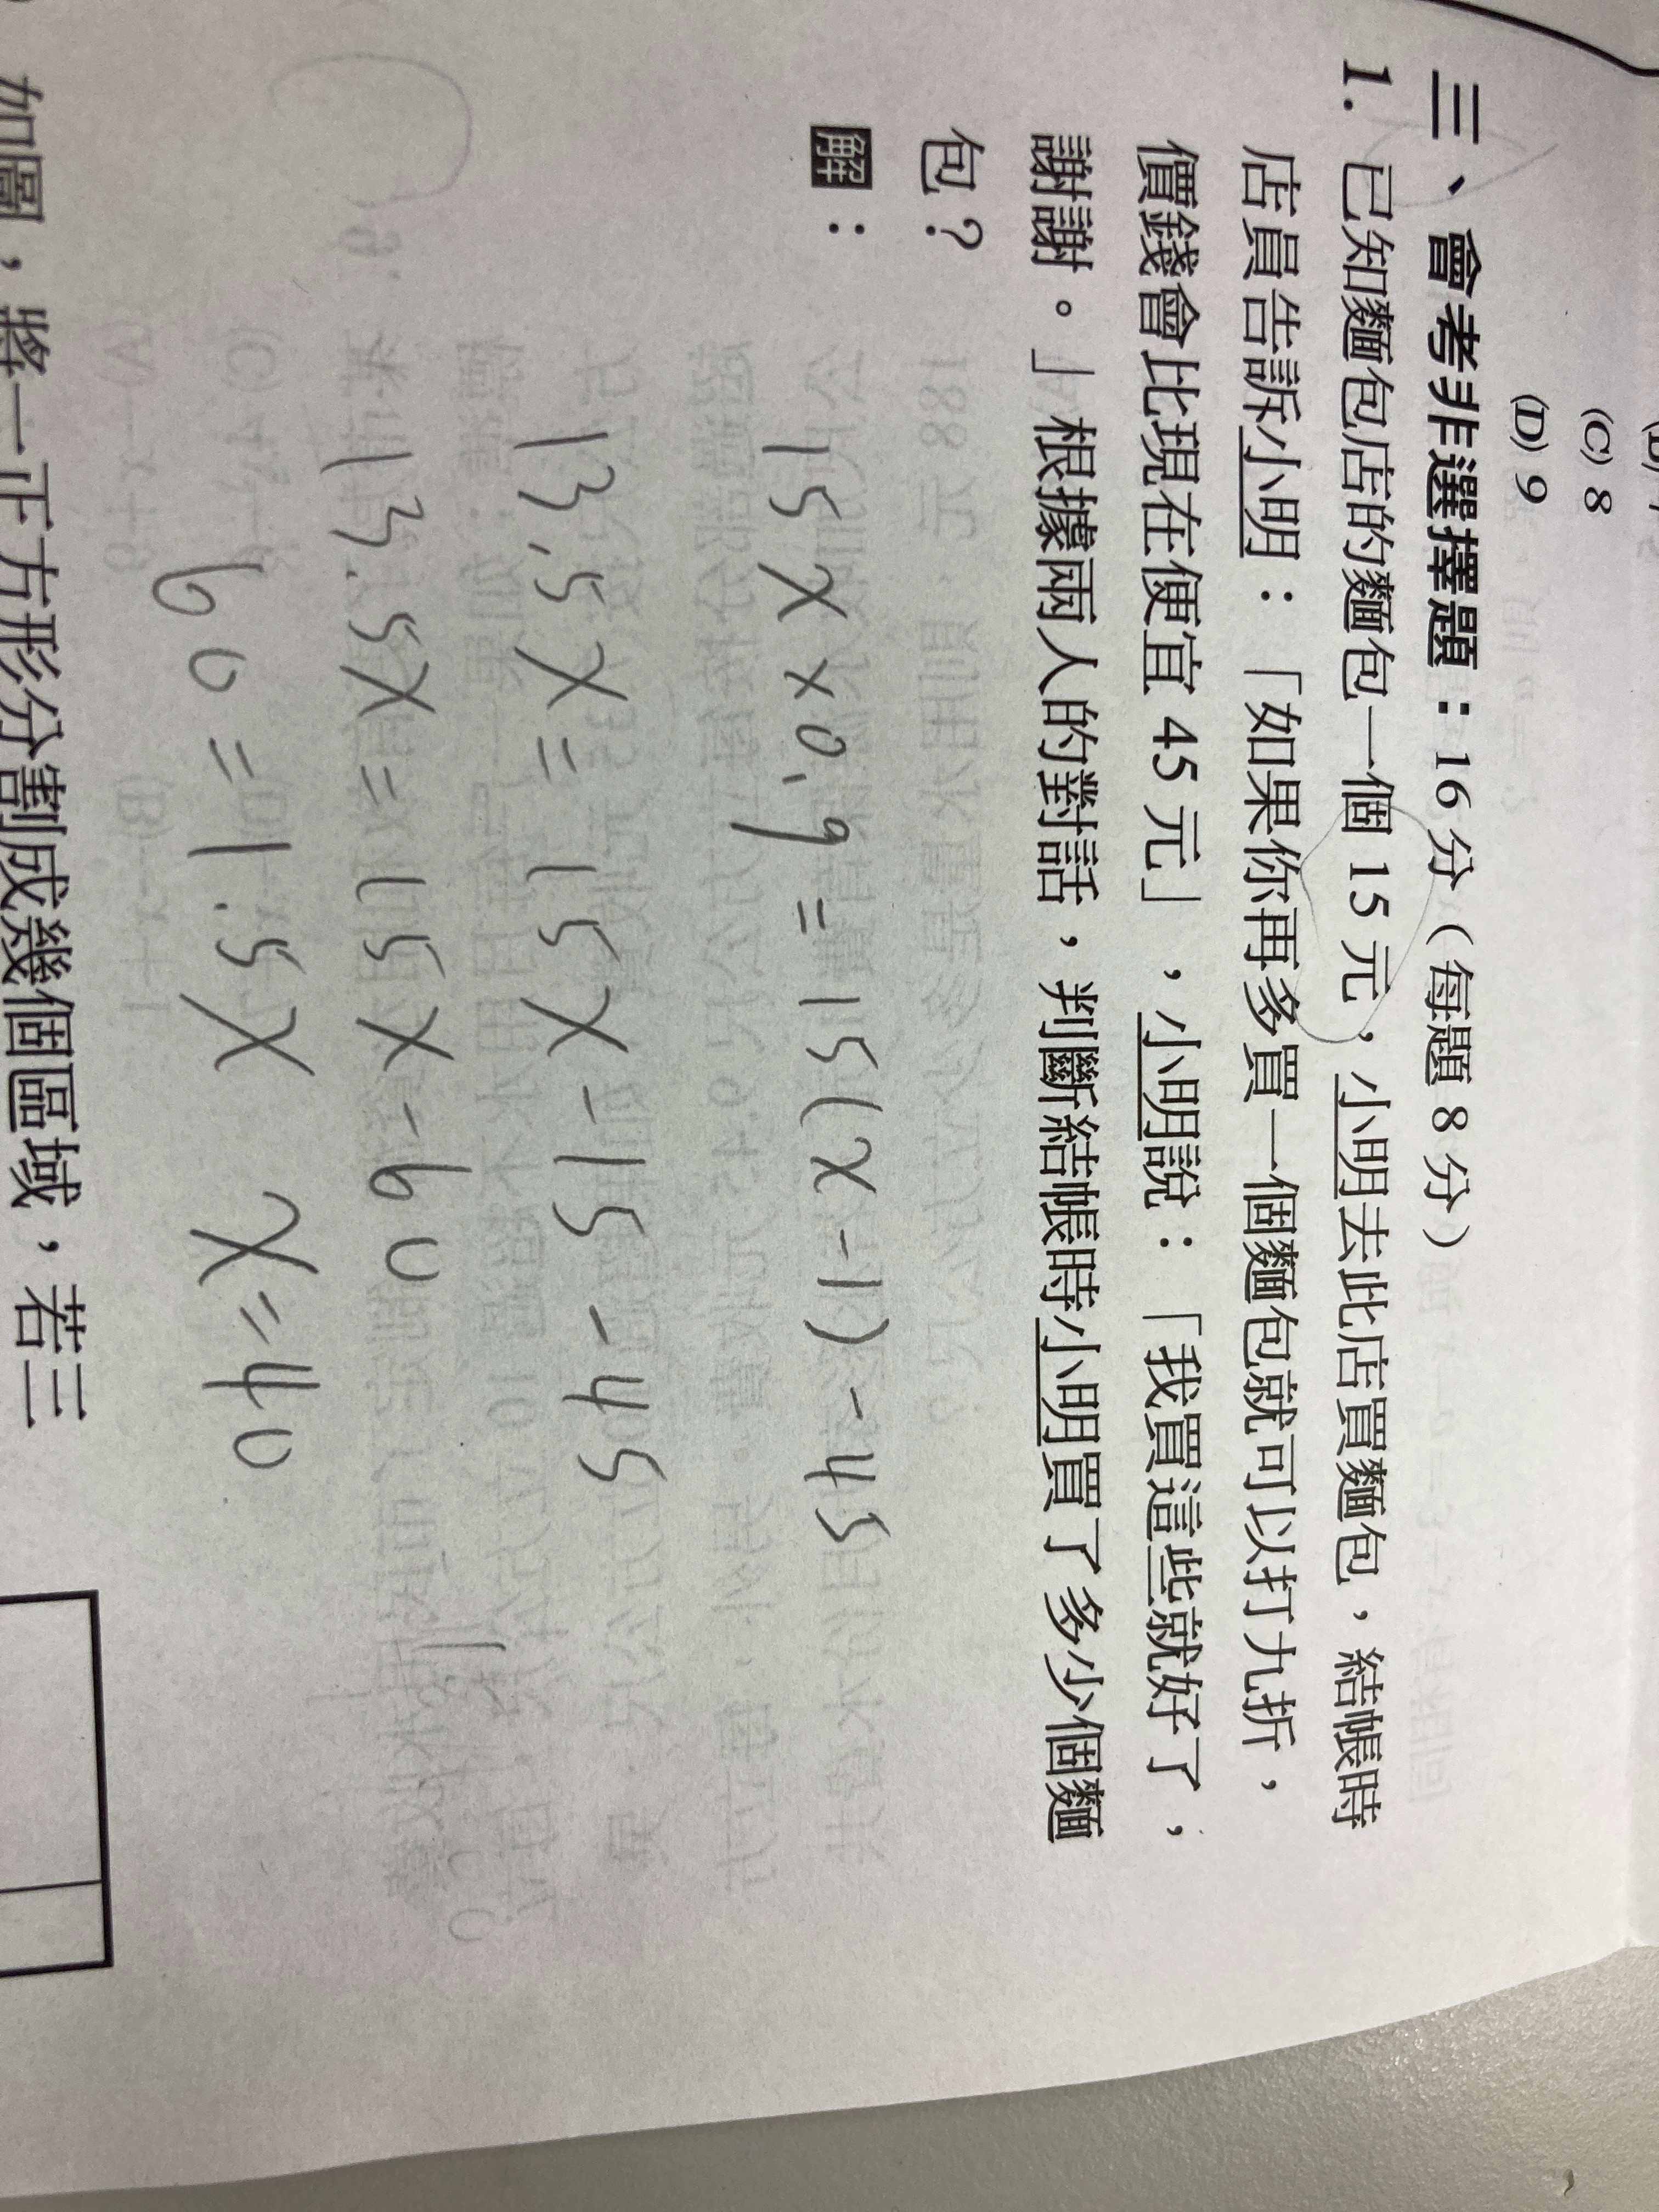 (C) 8
(D) 9
三、會考非選擇題：16 分（每題 8 分）
1. 已知麵包店的麵包一個 15 元，小明去此店買麵包，結帳時
店員告訴小明：「如果你再多買一個麵包就可以打九折，
價錢會比現在便宜 45 元」，小明說：「我買這些就好了，
謝謝。」根據兩人的對話，判斷結帳時小明買了多少個麵
包？
解：
15X×0.9=15(X-1)-45
13.5X=15X-15-45
13.5X=15X-60
60=1.5X X=40
如圖，將一正方形分割成幾個區域，若三